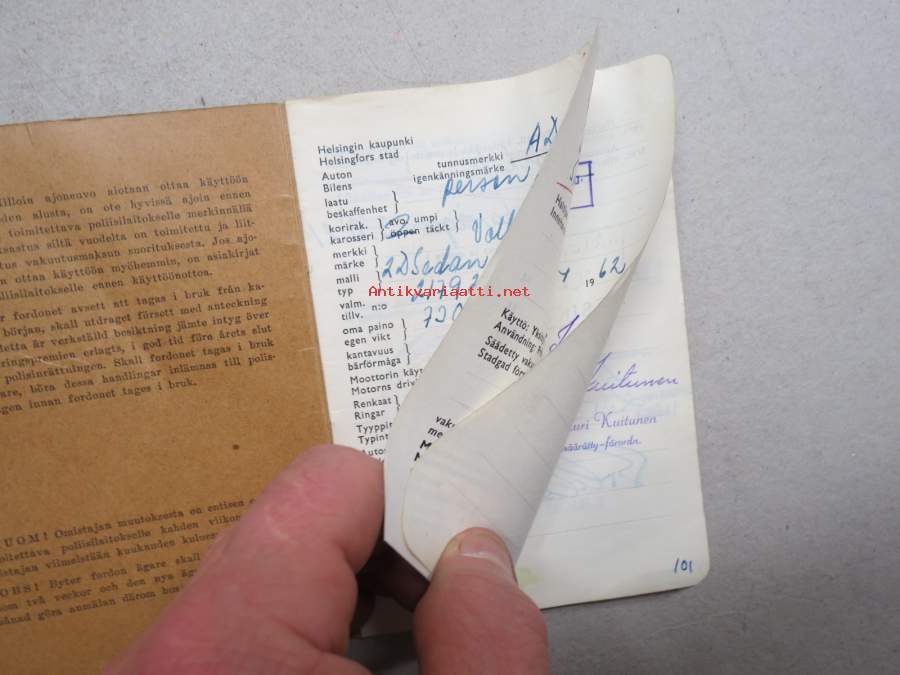 illoin ajoneuvo aiotaan ottaa käyttöön
den alusta, on ote hyvissä ajoin ennen
toimitettava poliisilaitokselle merkinnällä
kastus siltä vuodelta on toimitettu ja liit-
tus vakuutusmaksun suorituksesta. Jos ajo-
n ottaa käyttöön myöhemmin, on asiakirjat
oliisilaitokselle ennen käyttöönottoa.
r fordonet avsett att tagas i bruk från ka-
början, skall utdraget försett med anteckning
detta år verkställd besiktning jämte intyg över
ringspremien erlagts, i god tid före årets slut
polisinrättningen. Skall fordonet tagas i bruk
are, böra dessa handlingar inlämnas till polis-
gen innan fordonet tages i bruk.
UOM! Omistajan muutoksesta on entisen
oitettava poliisilaitokselle kahden viikon
stajan viimeistään kuukauden kulues
OBS! Byter fordon ägare skall
om två veckor och den nya äg
månad göra anmälan därom
Helsingin kaupunki
Helsingfors stad
Auton tunnusmerkki AD
Bilens igenkänningsmärke
laatu
beskaffenhet person
korirak. avo umpi
karosseri öppen täckt
merkki
märke
malli 2D Sedan
typ
valm. n:o
tillv.
oma paino 720
egen vikt
kantavuus
bärförmåga
Moottorin käy
Motorns driv
Renkaat
Ringar
Tyyppi
Typint
Käyttö: Yksi
Användning:
Säädetty vak
Stadgad för
vaku
me
1962
Antikvariaatti.net
Kuitunen
uri Kuitunen
määrätty-förordn.
101